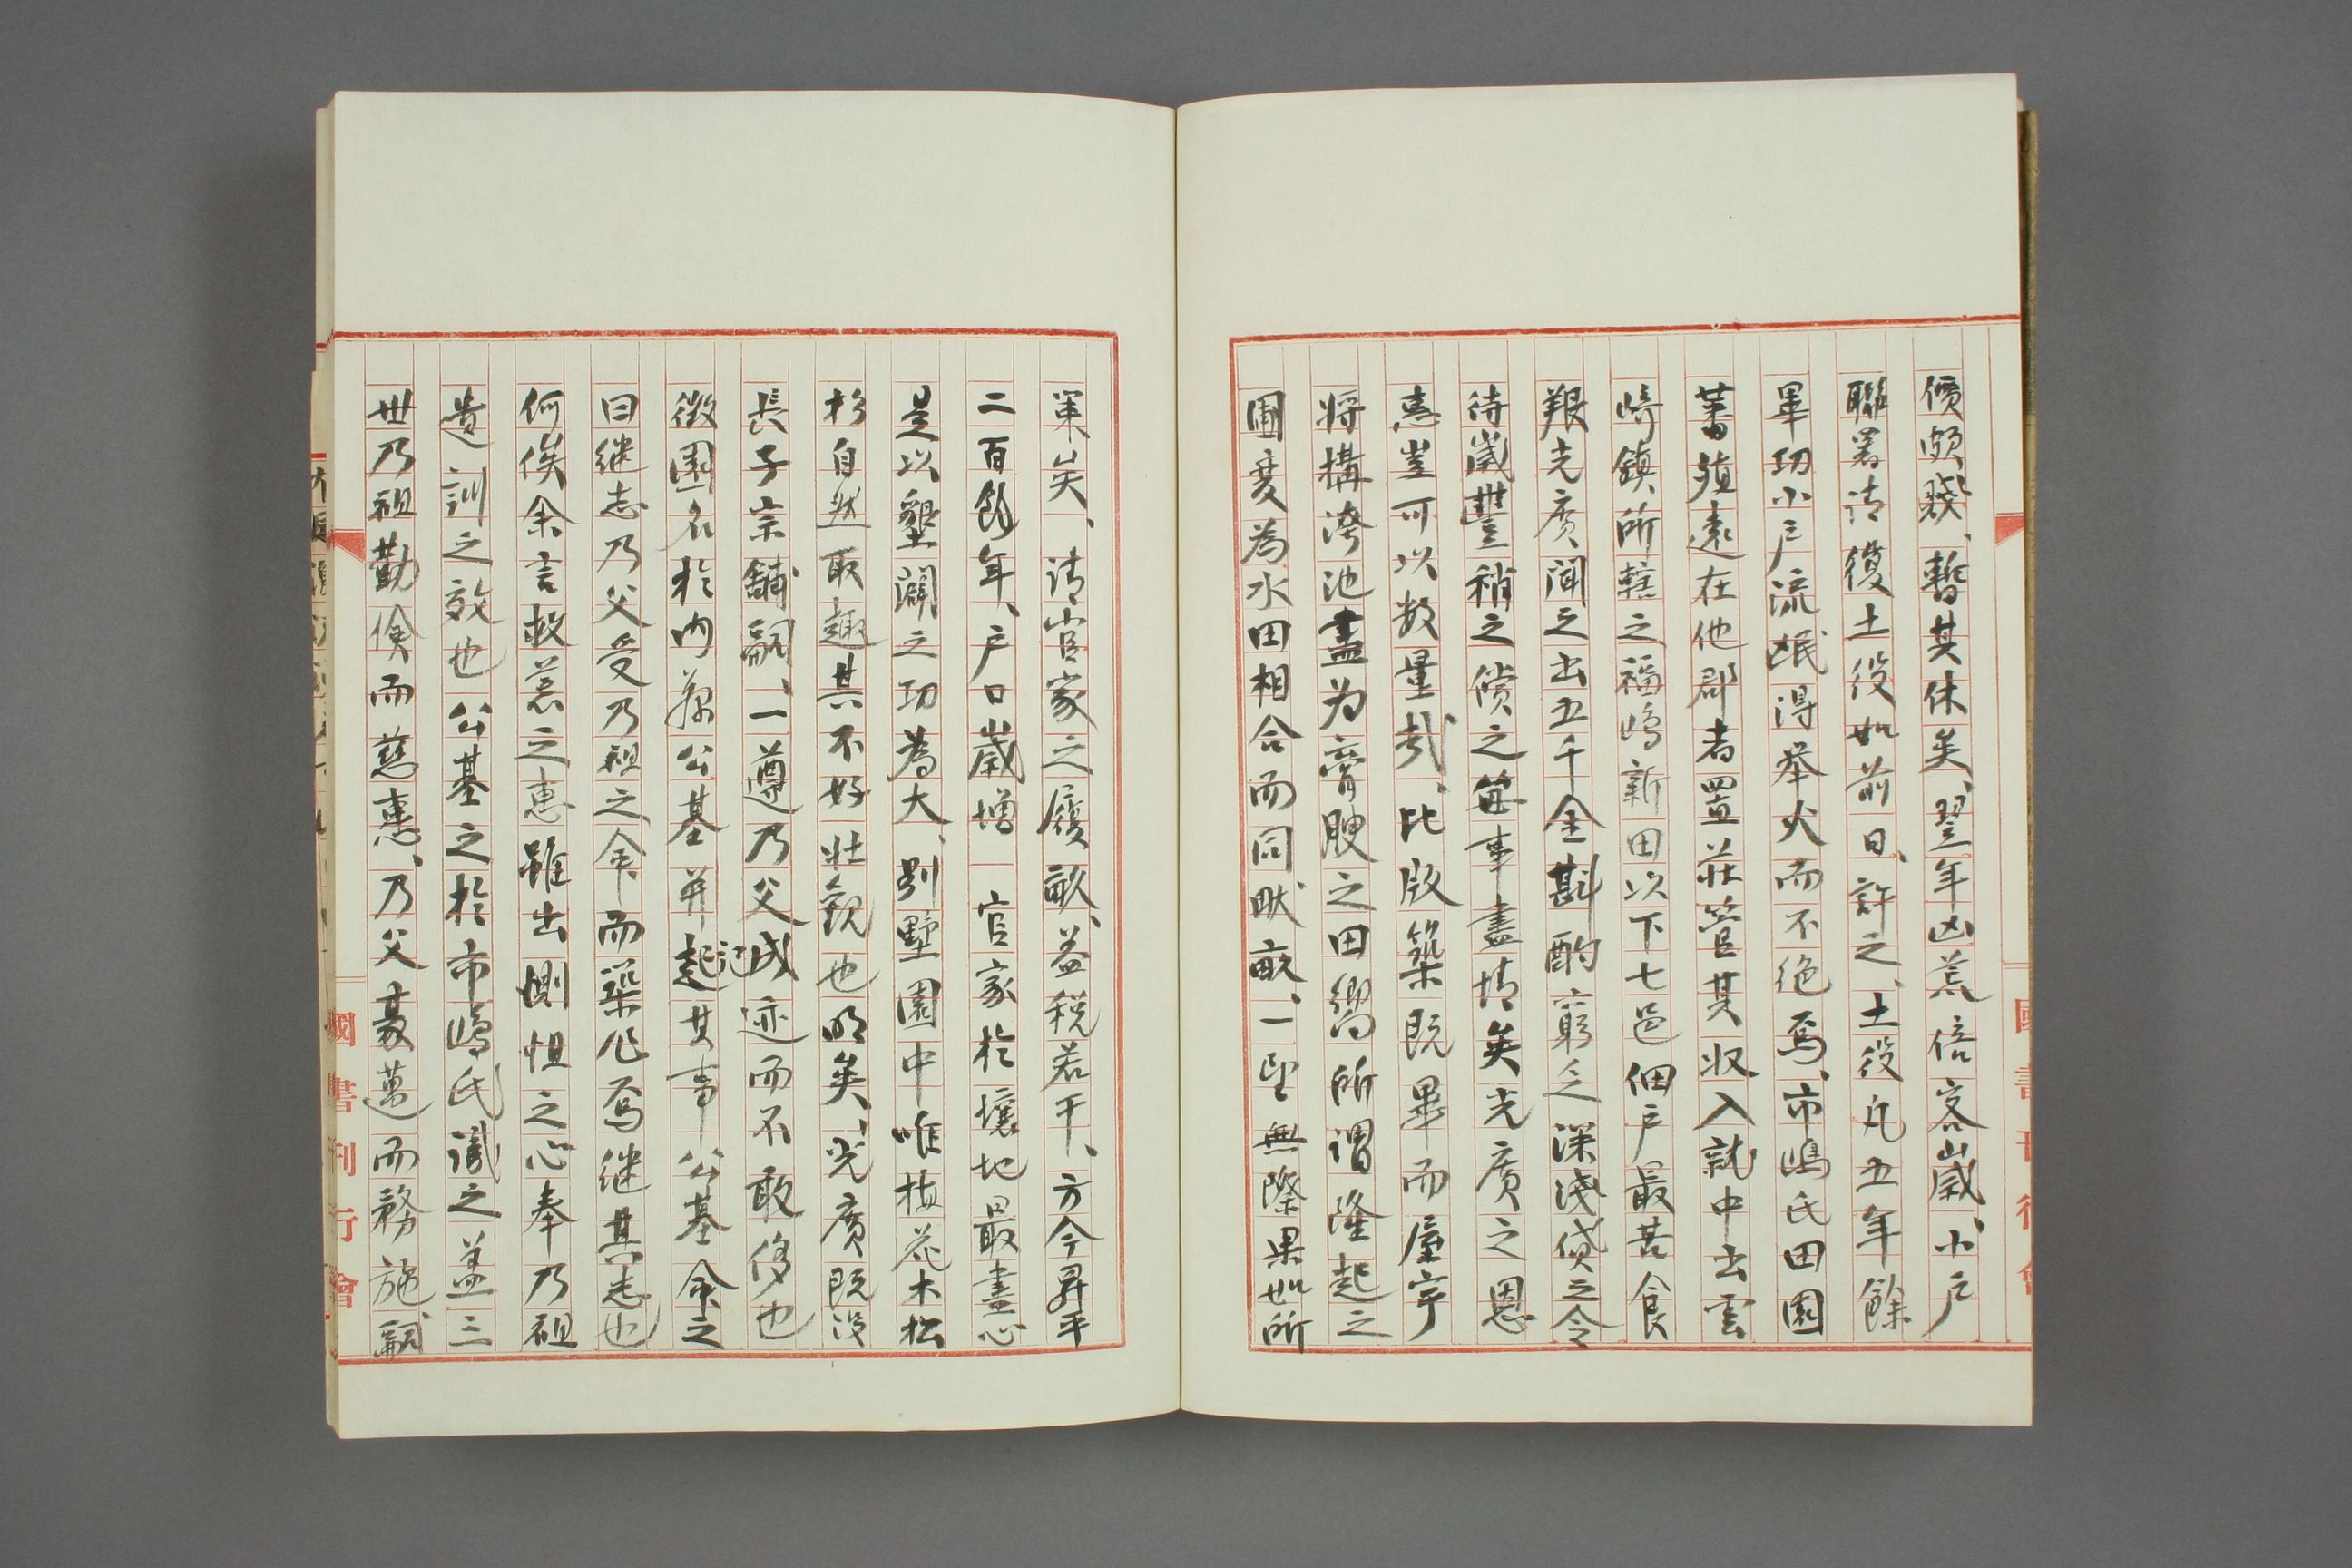 價頗賤、暫其休矣、翌年凶荒倍客歳、小戸
聯署請復土役如前日、許之、土役凡五年餘
畢功小戸流氓得挙火而不絶焉、市嶋氏田園
蕃殖遠在他郡者置荘管其収入就中出雲
崎鎮所轄之福嶋新田以下七邑佃戸最苦食
艱光廣聞之出五千金斟酌窮乏深浅貸之令
待歳豊稍之償之毎事盡情矣光廣之恩
恵豈可以数量哉、比版築既畢而屋宇
将構湾池盡為膏腴之田嚮所謂隆起之
圃変為水田相合而同畎畝、一望無際果如所
策矣、請官家之履畝、益税若干、方今昇平
二百餘年、戸口歳增 官家於壌地最盡心
是以墾闢之功為大、別墅園中唯梅花木松
杉自然取趣其不好壮観也明矣、光廣既没
長子宗鋪嗣、一遵乃父成迹而不敢侈也
徴園名於内藤公基并記起其事公基余之
曰継志乃父受乃祖之命而築作焉継其志也
何俟余言救荒之恵雖出惻怛之心奉乃祖
遺訓之效也公基之於市嶋氏識之盖三
世乃祖勤倹而慈恵、乃父豪邁而務施、嗣
國書刊行會
國書刊行會